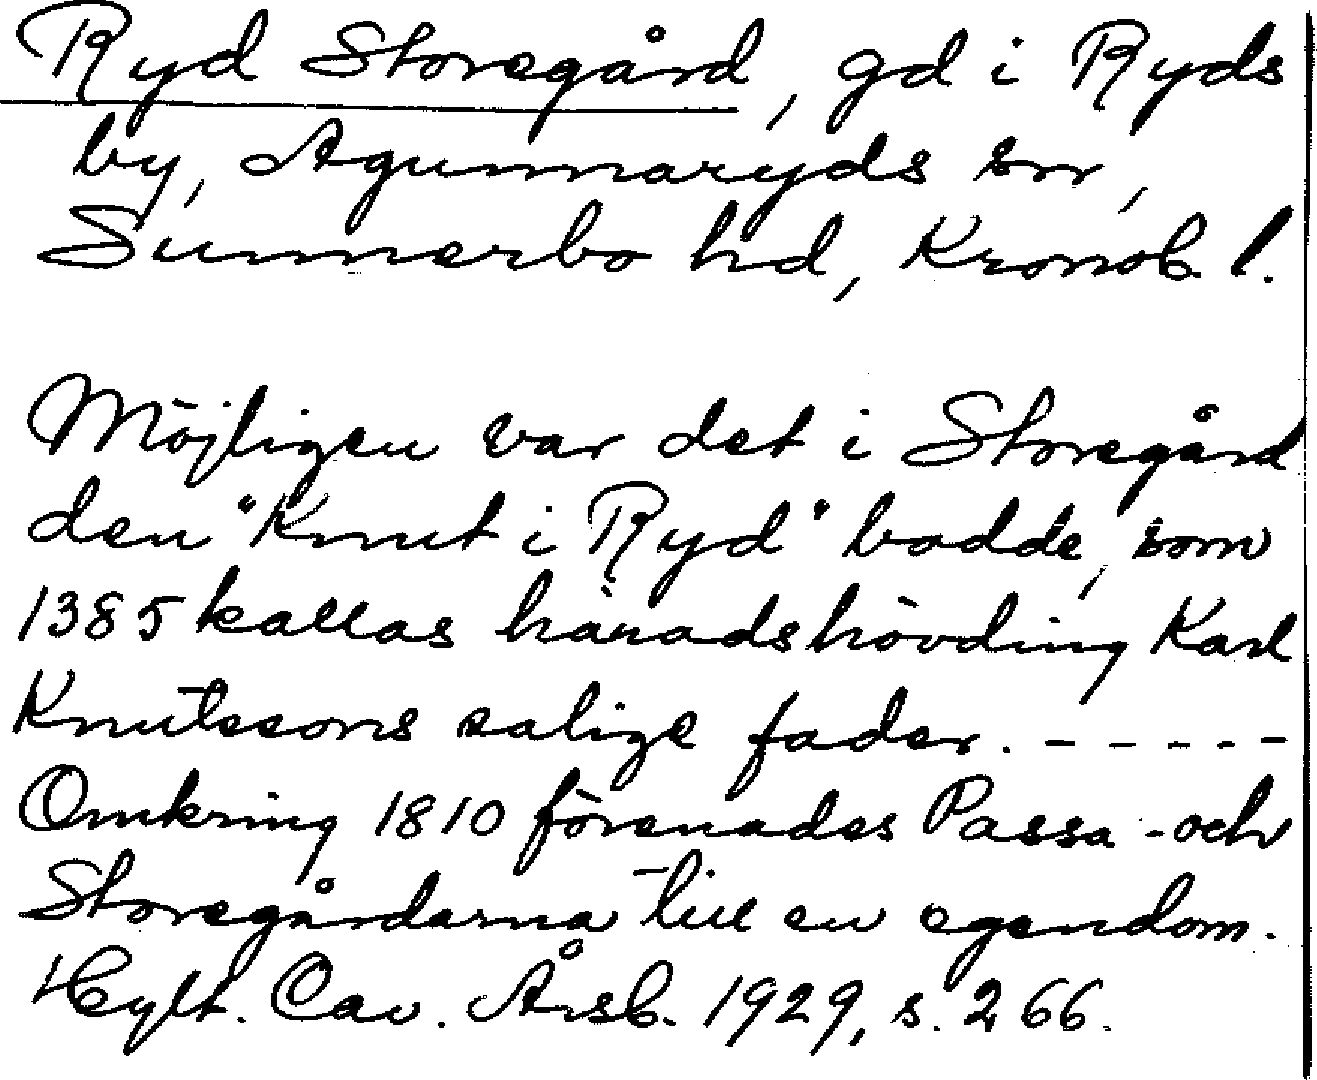 Ryd Storegård, gd i Ryds
by, Agunnaryds sn,
Sunnerbo hd, Kronob. l.
Möjligen var det i Storegård
den "Knut i Ryd" bodde, som
1385 kallas häradshövding Karl
Knutssons salige fader. - - - - -
Omkring 1810 förenades Passa- och
Storegårdarna till en egendom.
Hylt. Cav. Årsb. 1929, s. 266.